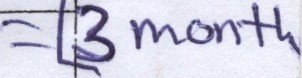 =[3 month